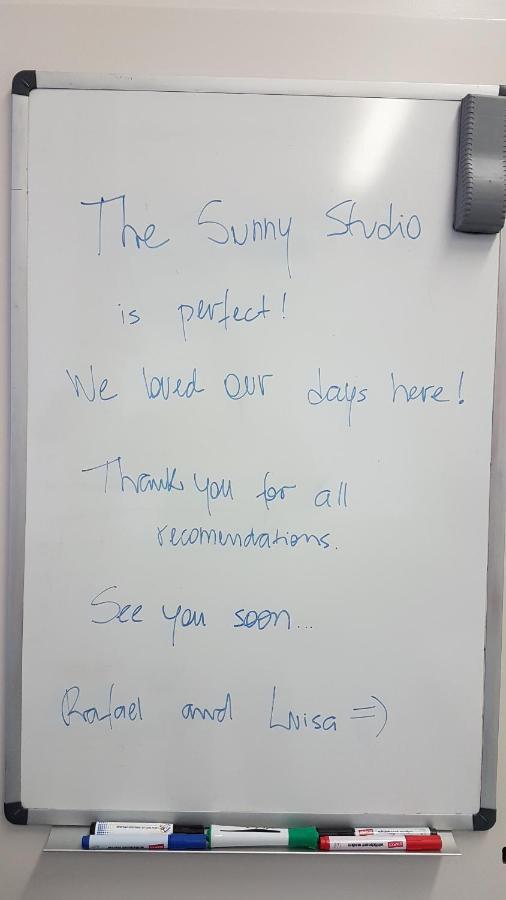 The Sunny Studio
is perfect!
We loved our days here!
Thank you for all
recomendations.
See you soon...
Rafael and Luisa =)